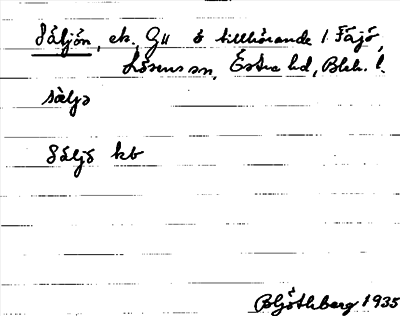 Säljön, ek. G11 ö tillhörande 1 Fäjö,
Lösens sn, Östra hd, Blek. l.
sæljə
Säljö kb
1935